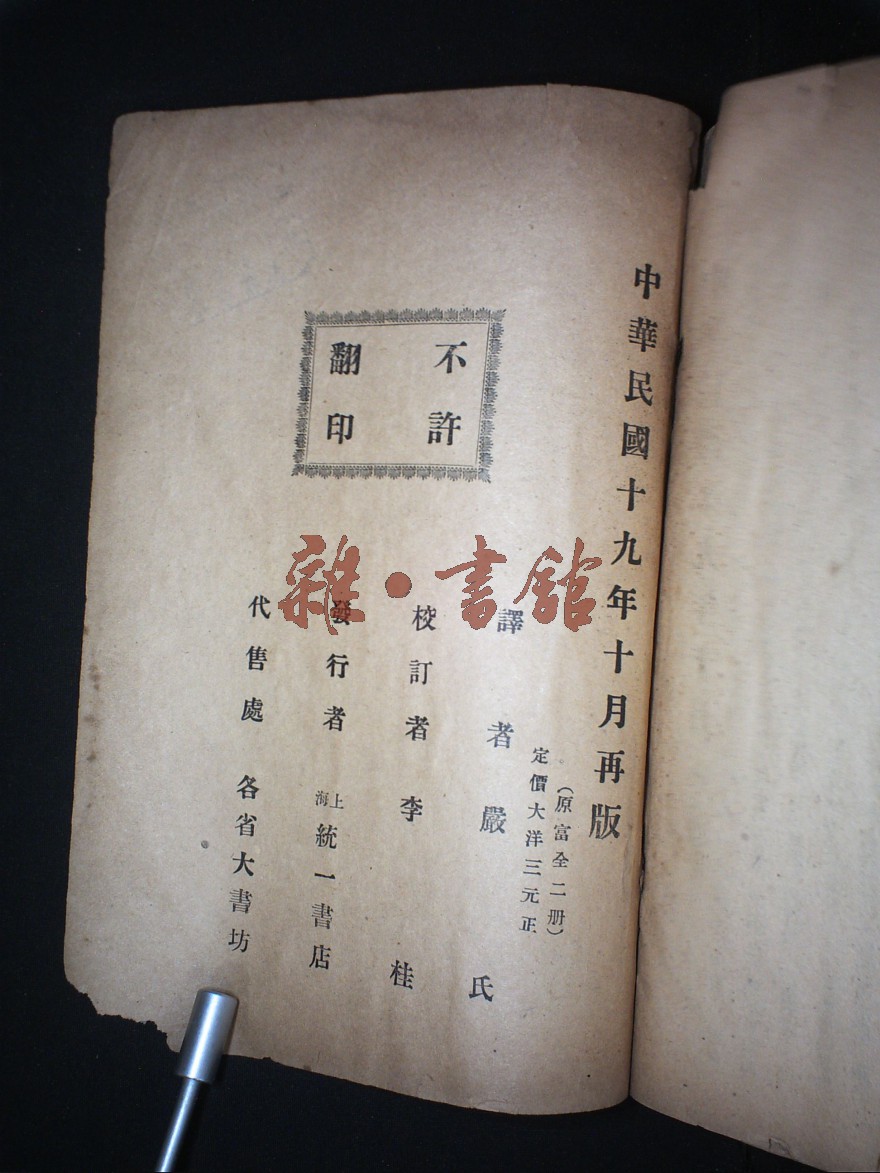 中華民國十九年十月再版
（原富全二册）
定價大洋三元正
譯者嚴氏
校訂者李桂
發行者上海統一書店
代售處各省大書坊
不許
翻印
雜·書館